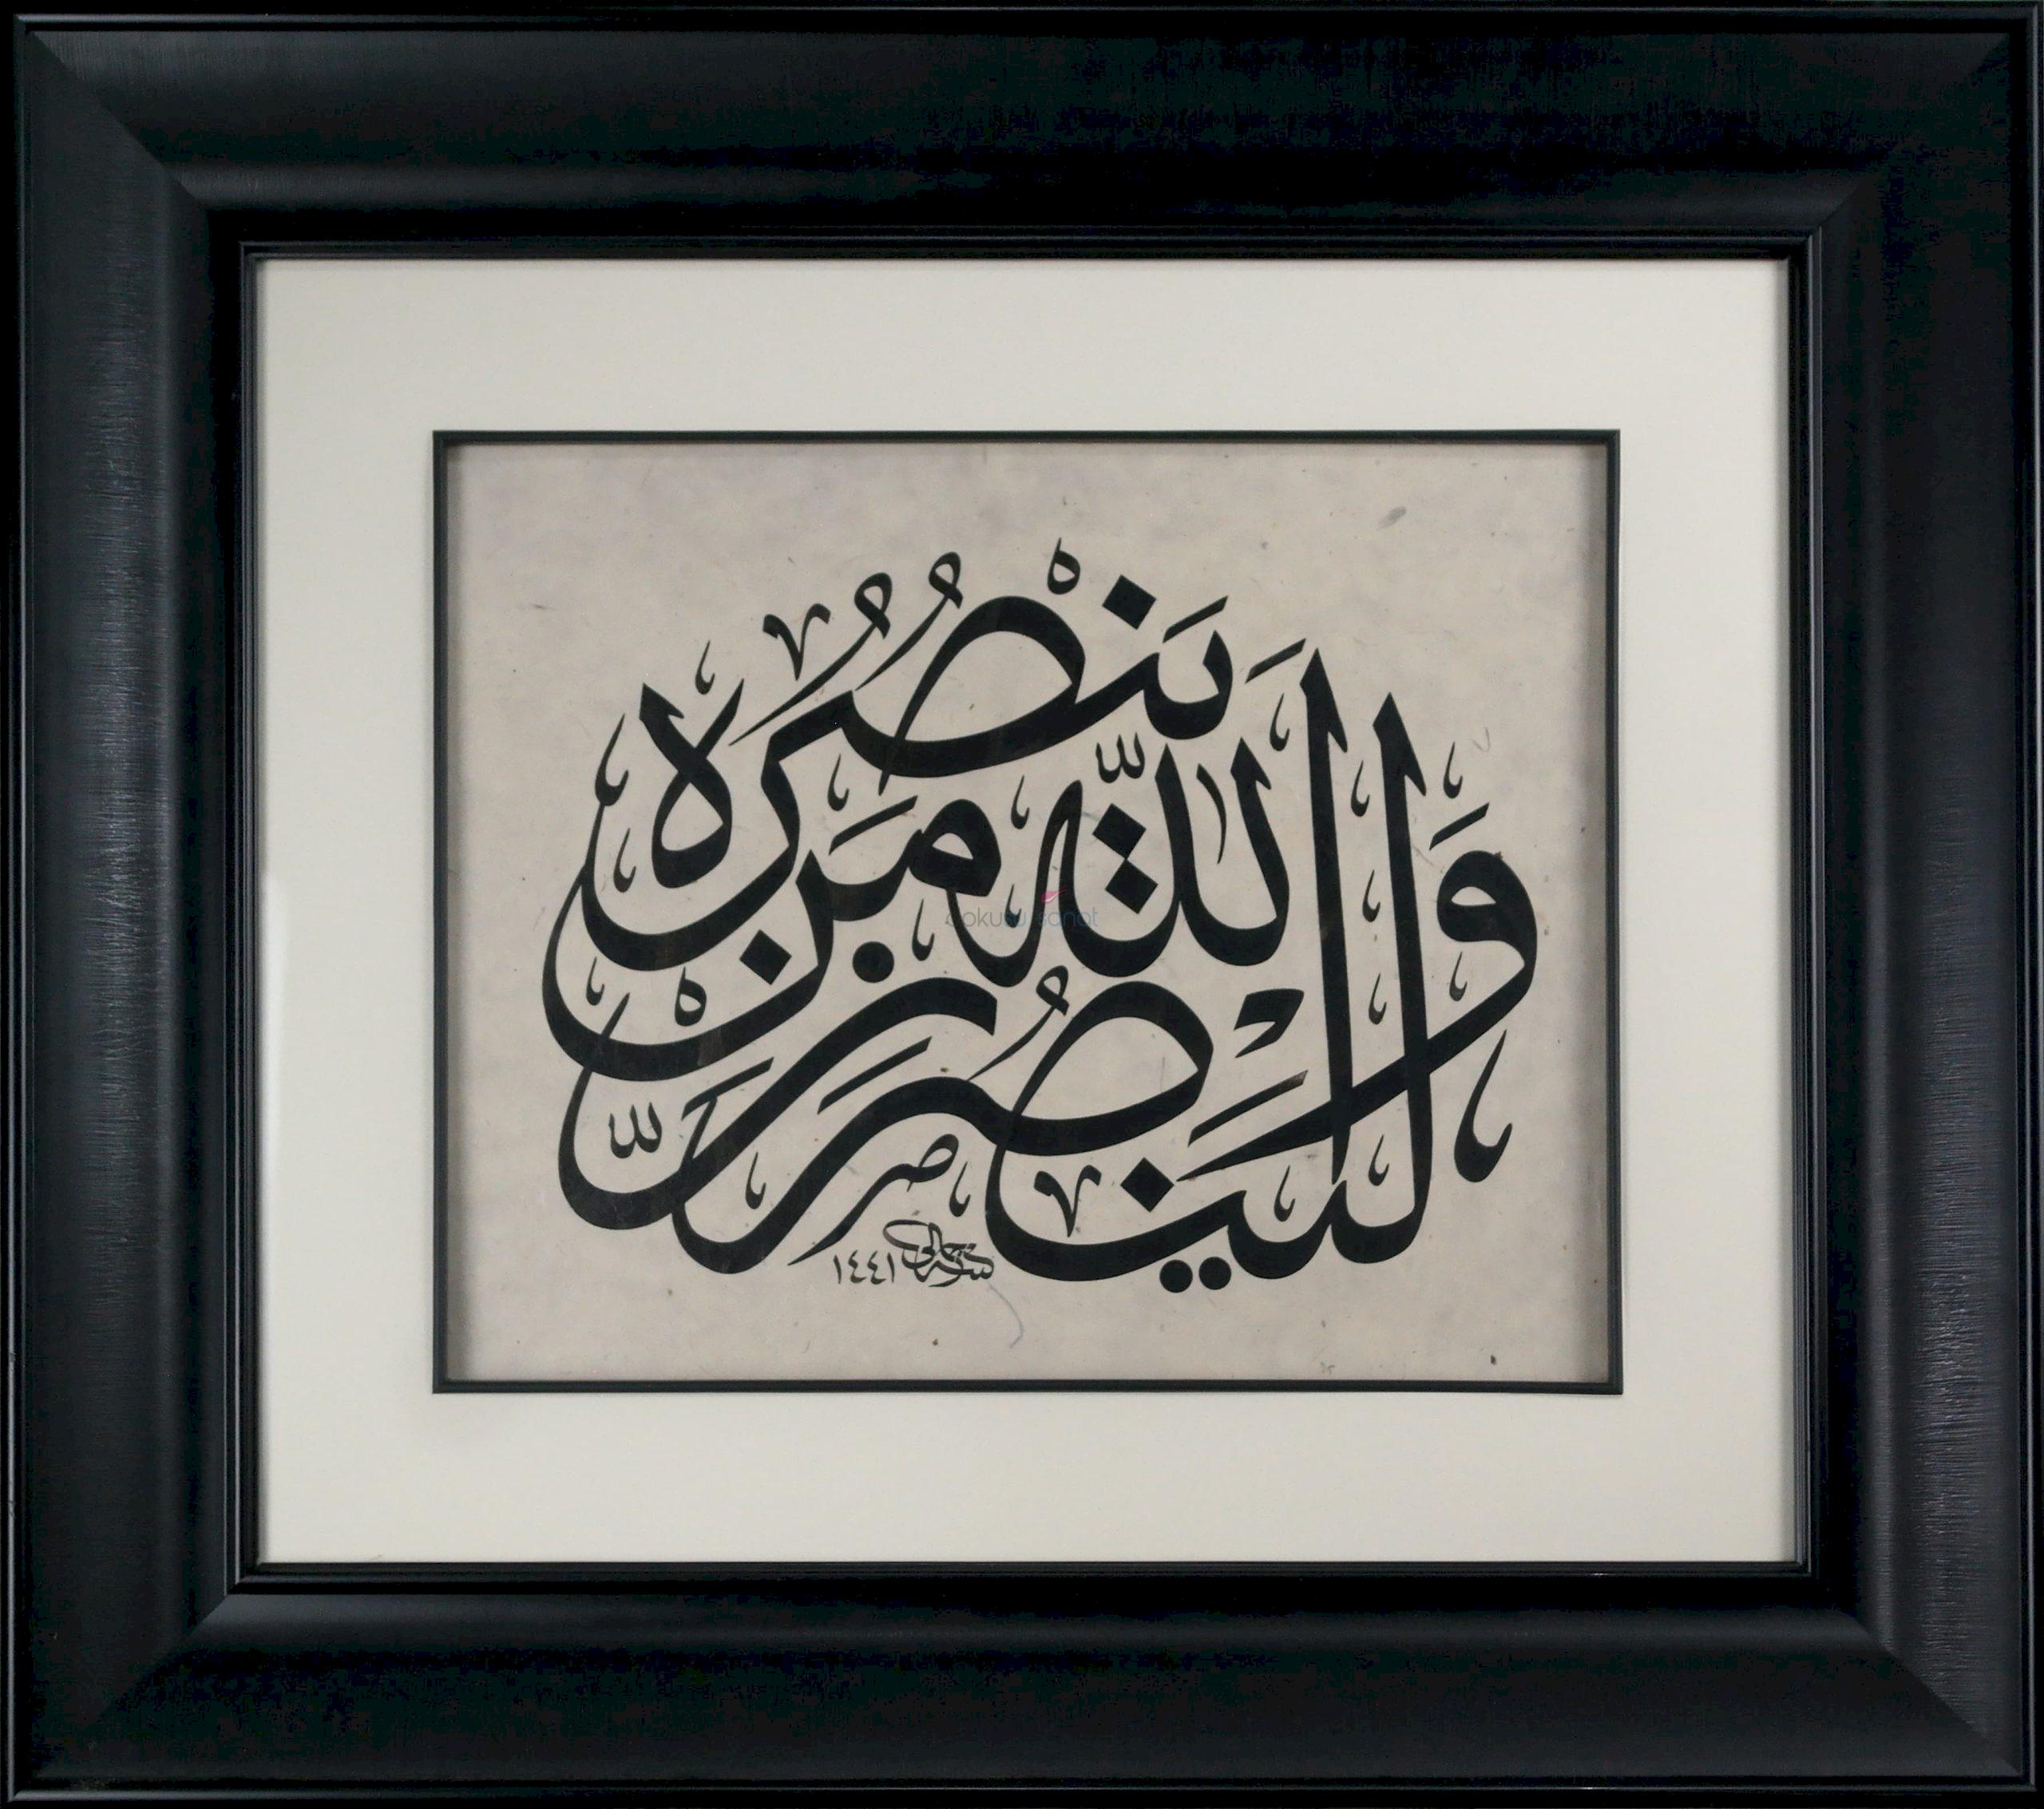 وَلَيَنْصُرَنَّ اللّٰهُ مَنْ يَنْصُرُهُ
١٤٤١